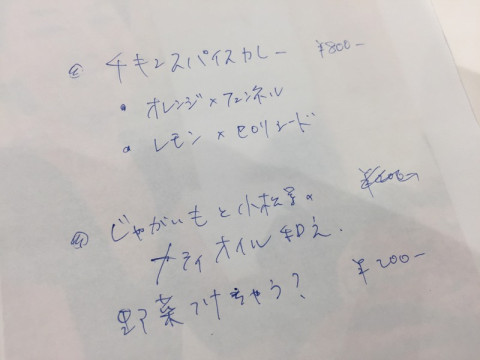 チキンスパイスカレー ¥800-
・オレンジ×フェンネル
・レモン×セロリシード
じゃがいもと小松菜の ¥400-
オイル和え.
野菜つけちゃう? ¥200-